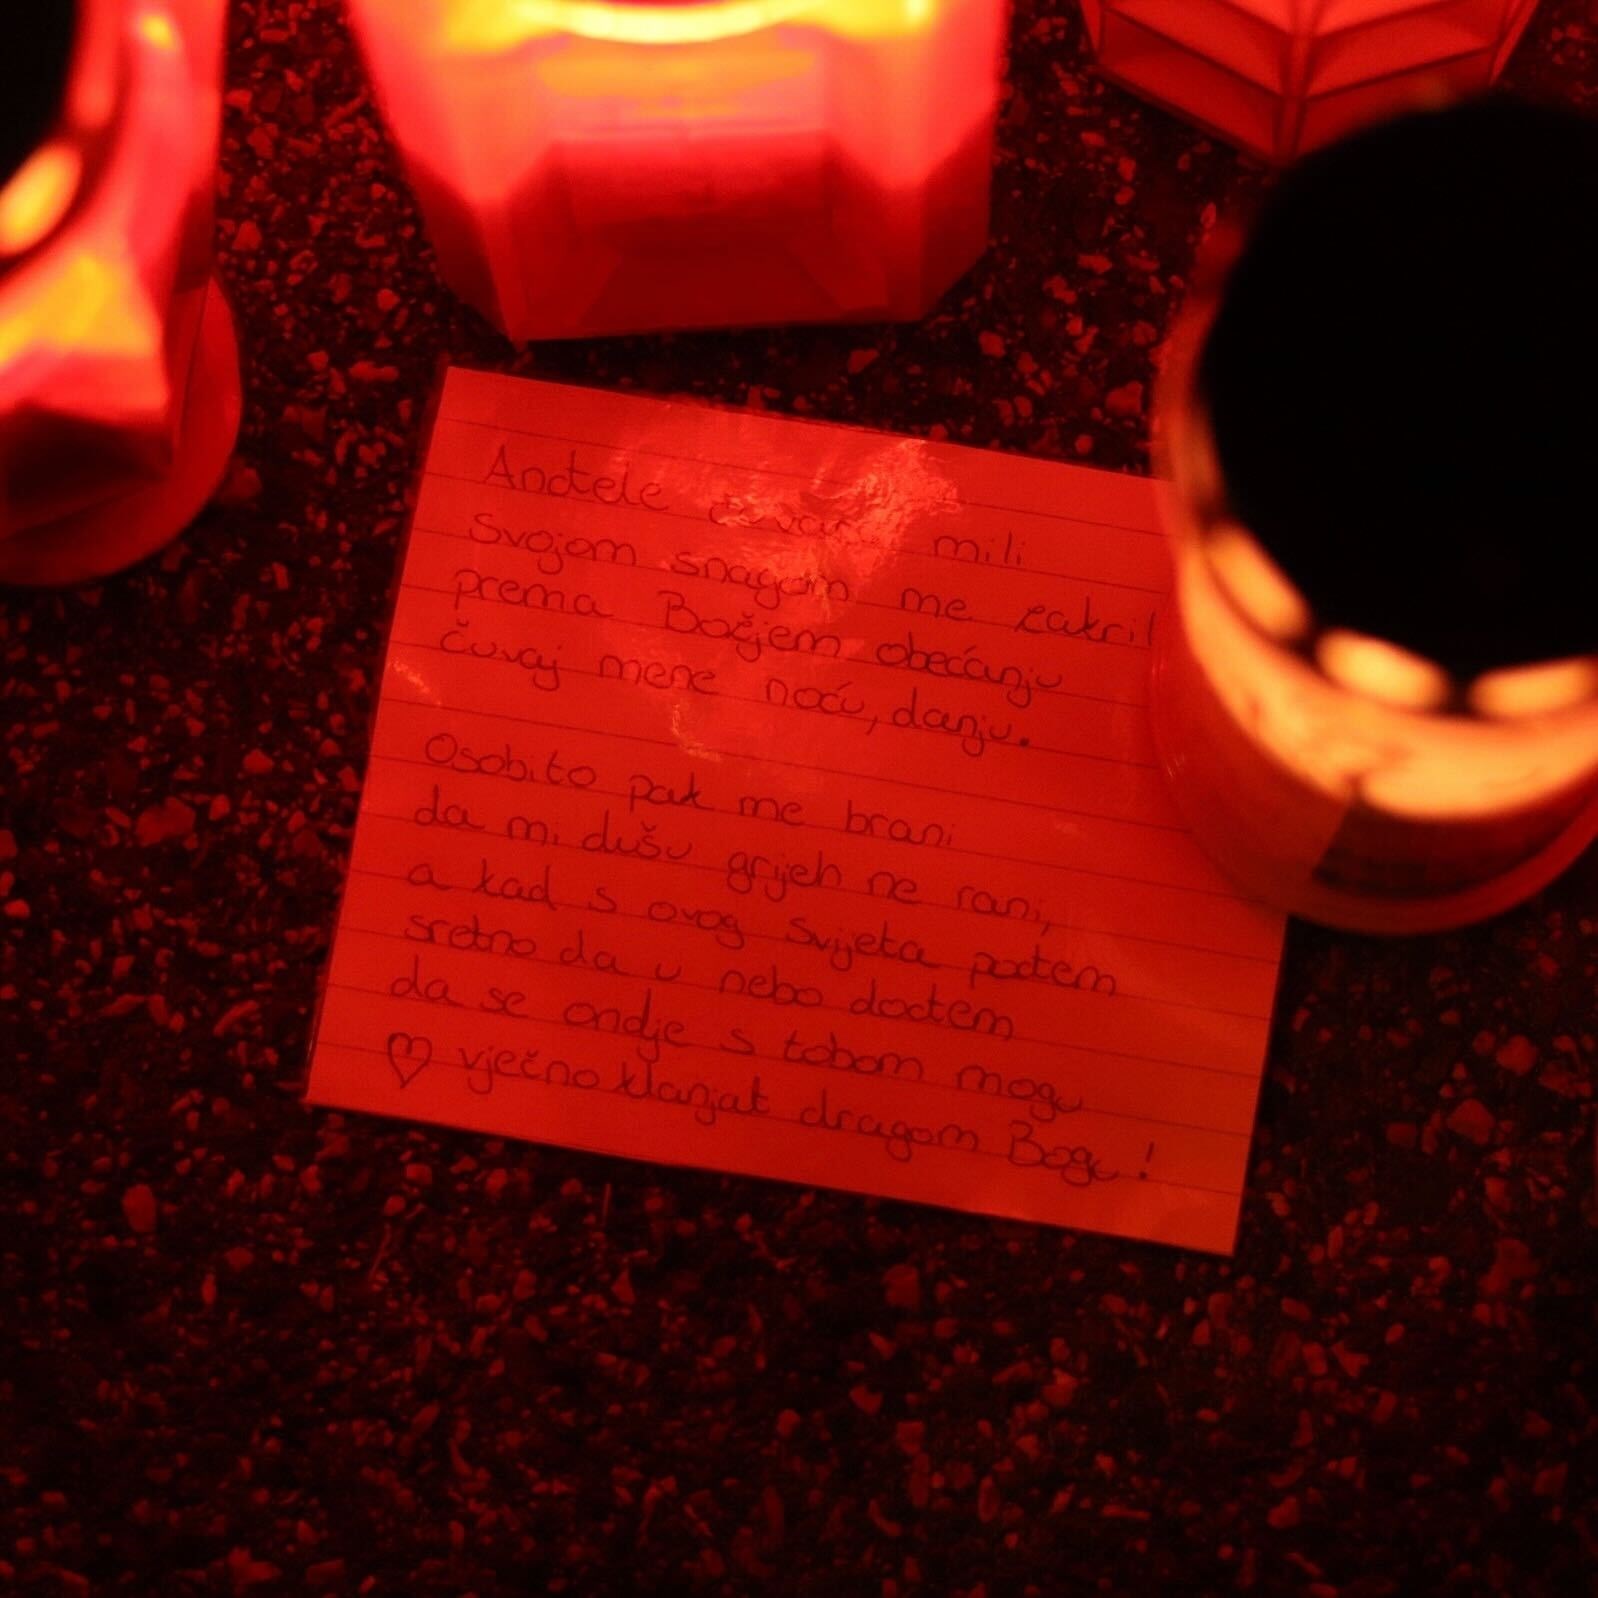 Anđele čuvaru mili
Svojom snagom me zakril
prema Božjem obećanju
čuvaj mene noću, danju.
Osobito pak me brani
da mi dušu grijeh ne rani,
a kad s ovog svijeta pođem
sretno da u nebo dođem,
da se ondje s tobom mogu
vječno klanjat dragom Bogu!